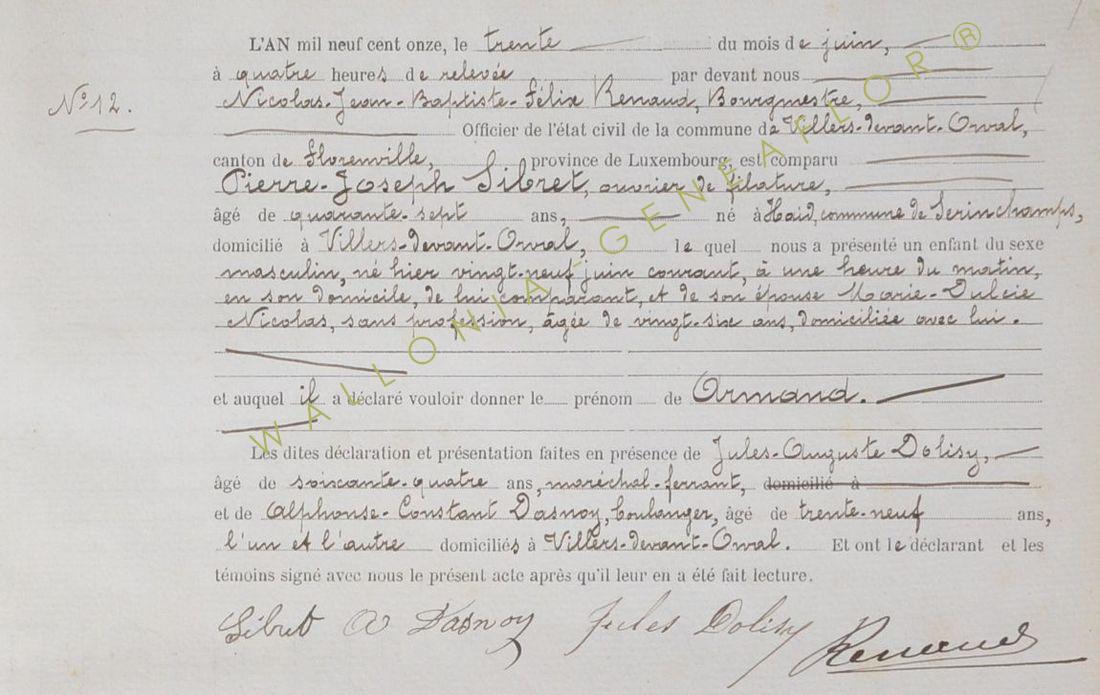 L'AN mil neuf cent onze, le trente du mois de juin,
à quatre heures de relevée par devant nous
No 12.
Nicolas-Jean-Baptiste-Félix Renaud, Bourgmestre,
Officier de l'état civil de la commune de Villers-devant-Orval,
canton de Florenville, province de Luxembourg, est comparu
Pierre-Joseph Sibret, ouvrier de filature,
âgé de quarante-sept ans, né à Haid, commune de Serinchamps,
domicilié à Villers-devant-Orval, lequel nous a présenté un enfant du sexe
masculin, né hier vingt-neuf juin courant, à une heure du matin,
en son domicile, de lui comparant, et de son épouse Marie-Dulcie
Nicolas, sans profession, âgée de vingt-six ans, domiciliée avec lui.
et auquel il a déclaré vouloir donner le prénom de Armand.
Les dites déclaration et présentation faites en présence de Jules-Auguste Dolisy,
âgé de soixante-quatre ans, maréchal-ferrant, domicilié à
et de Alphonse-Constant Dasnoy, boulanger, âgé de trente-neuf ans,
l'un et l'autre domiciliés à Villers-devant-Orval. Et ont le déclarant et les
témoins signé avec nous le présent acte après qu'il leur en a été fait lecture.
Sibret A Dasnoy Jules Dolisy Renaud
WALLONIA-GENEAFLOR®